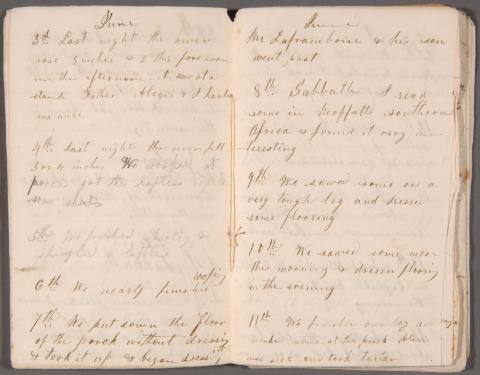 June
3d. Last night the river
rose 8 inches & 2 this forenoon
in the afternoon it was at a
stand Father Alex & I hauled
4th Last night the river fell
3 or 4 inches We worked at
porch got the rafters
5th We finished sheeting &
roofing
6th We nearly finished
7th We put down the floor
of the porch without dressing
& took it up & began dressing it
June
Mr Laframboise & his son
went past
8th Sabbath I read
some in Moffatts southern
Africa & found it very in-
teresting
9th We sawed some on a
very tough log and dressed
some flooring
10th We sawed some more
this morning & dressed flooring
in the evening
11th We finished our log and
worked some at the porch
was sick and took tartar